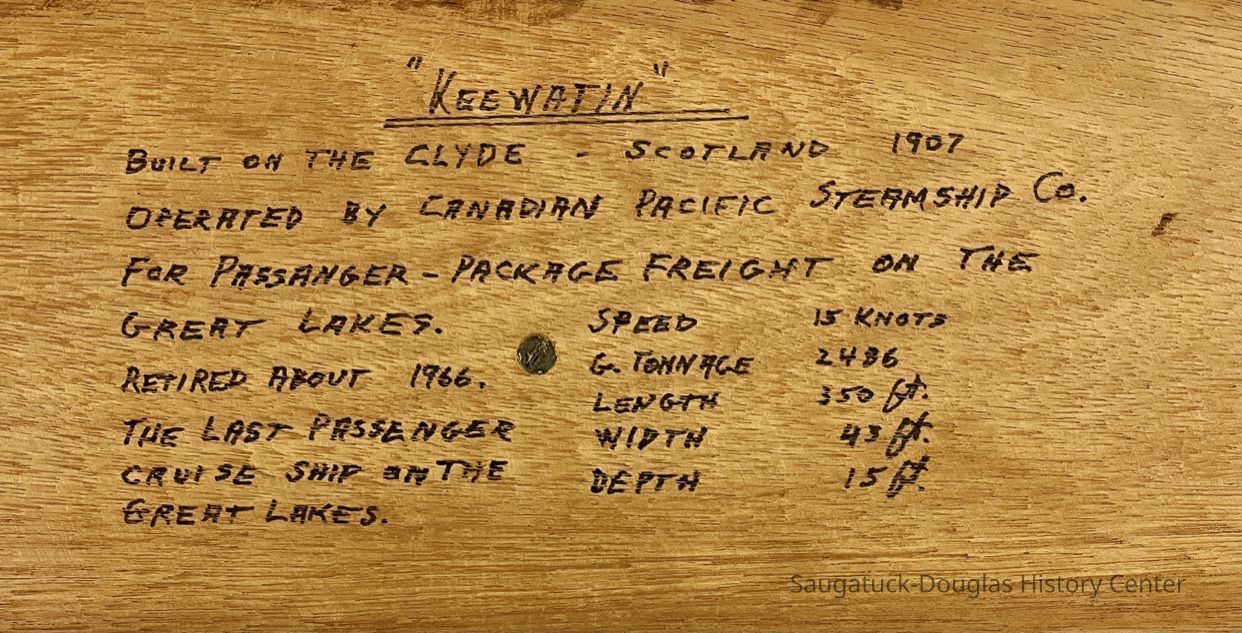 "KEEWATIN"
BUILT ON THE CLYDE - SCOTLAND 1907
OPERATED BY CANADIAN PACIFIC STEAMSHIP Co.
FOR PASSANGER - PACKAGE FREIGHT ON THE
GREAT LAKES.
RETIRED ABOUT 1966.
THE LAST PASSENGER
CRUISE SHIP ON THE
GREAT LAKES.
SPEED 15 KNOTS
G. TONNAGE 2486
LENGTH 350 ft.
WIDTH 43 ft.
DEPTH 15 ft.
Saugatuck-Douglas History Center